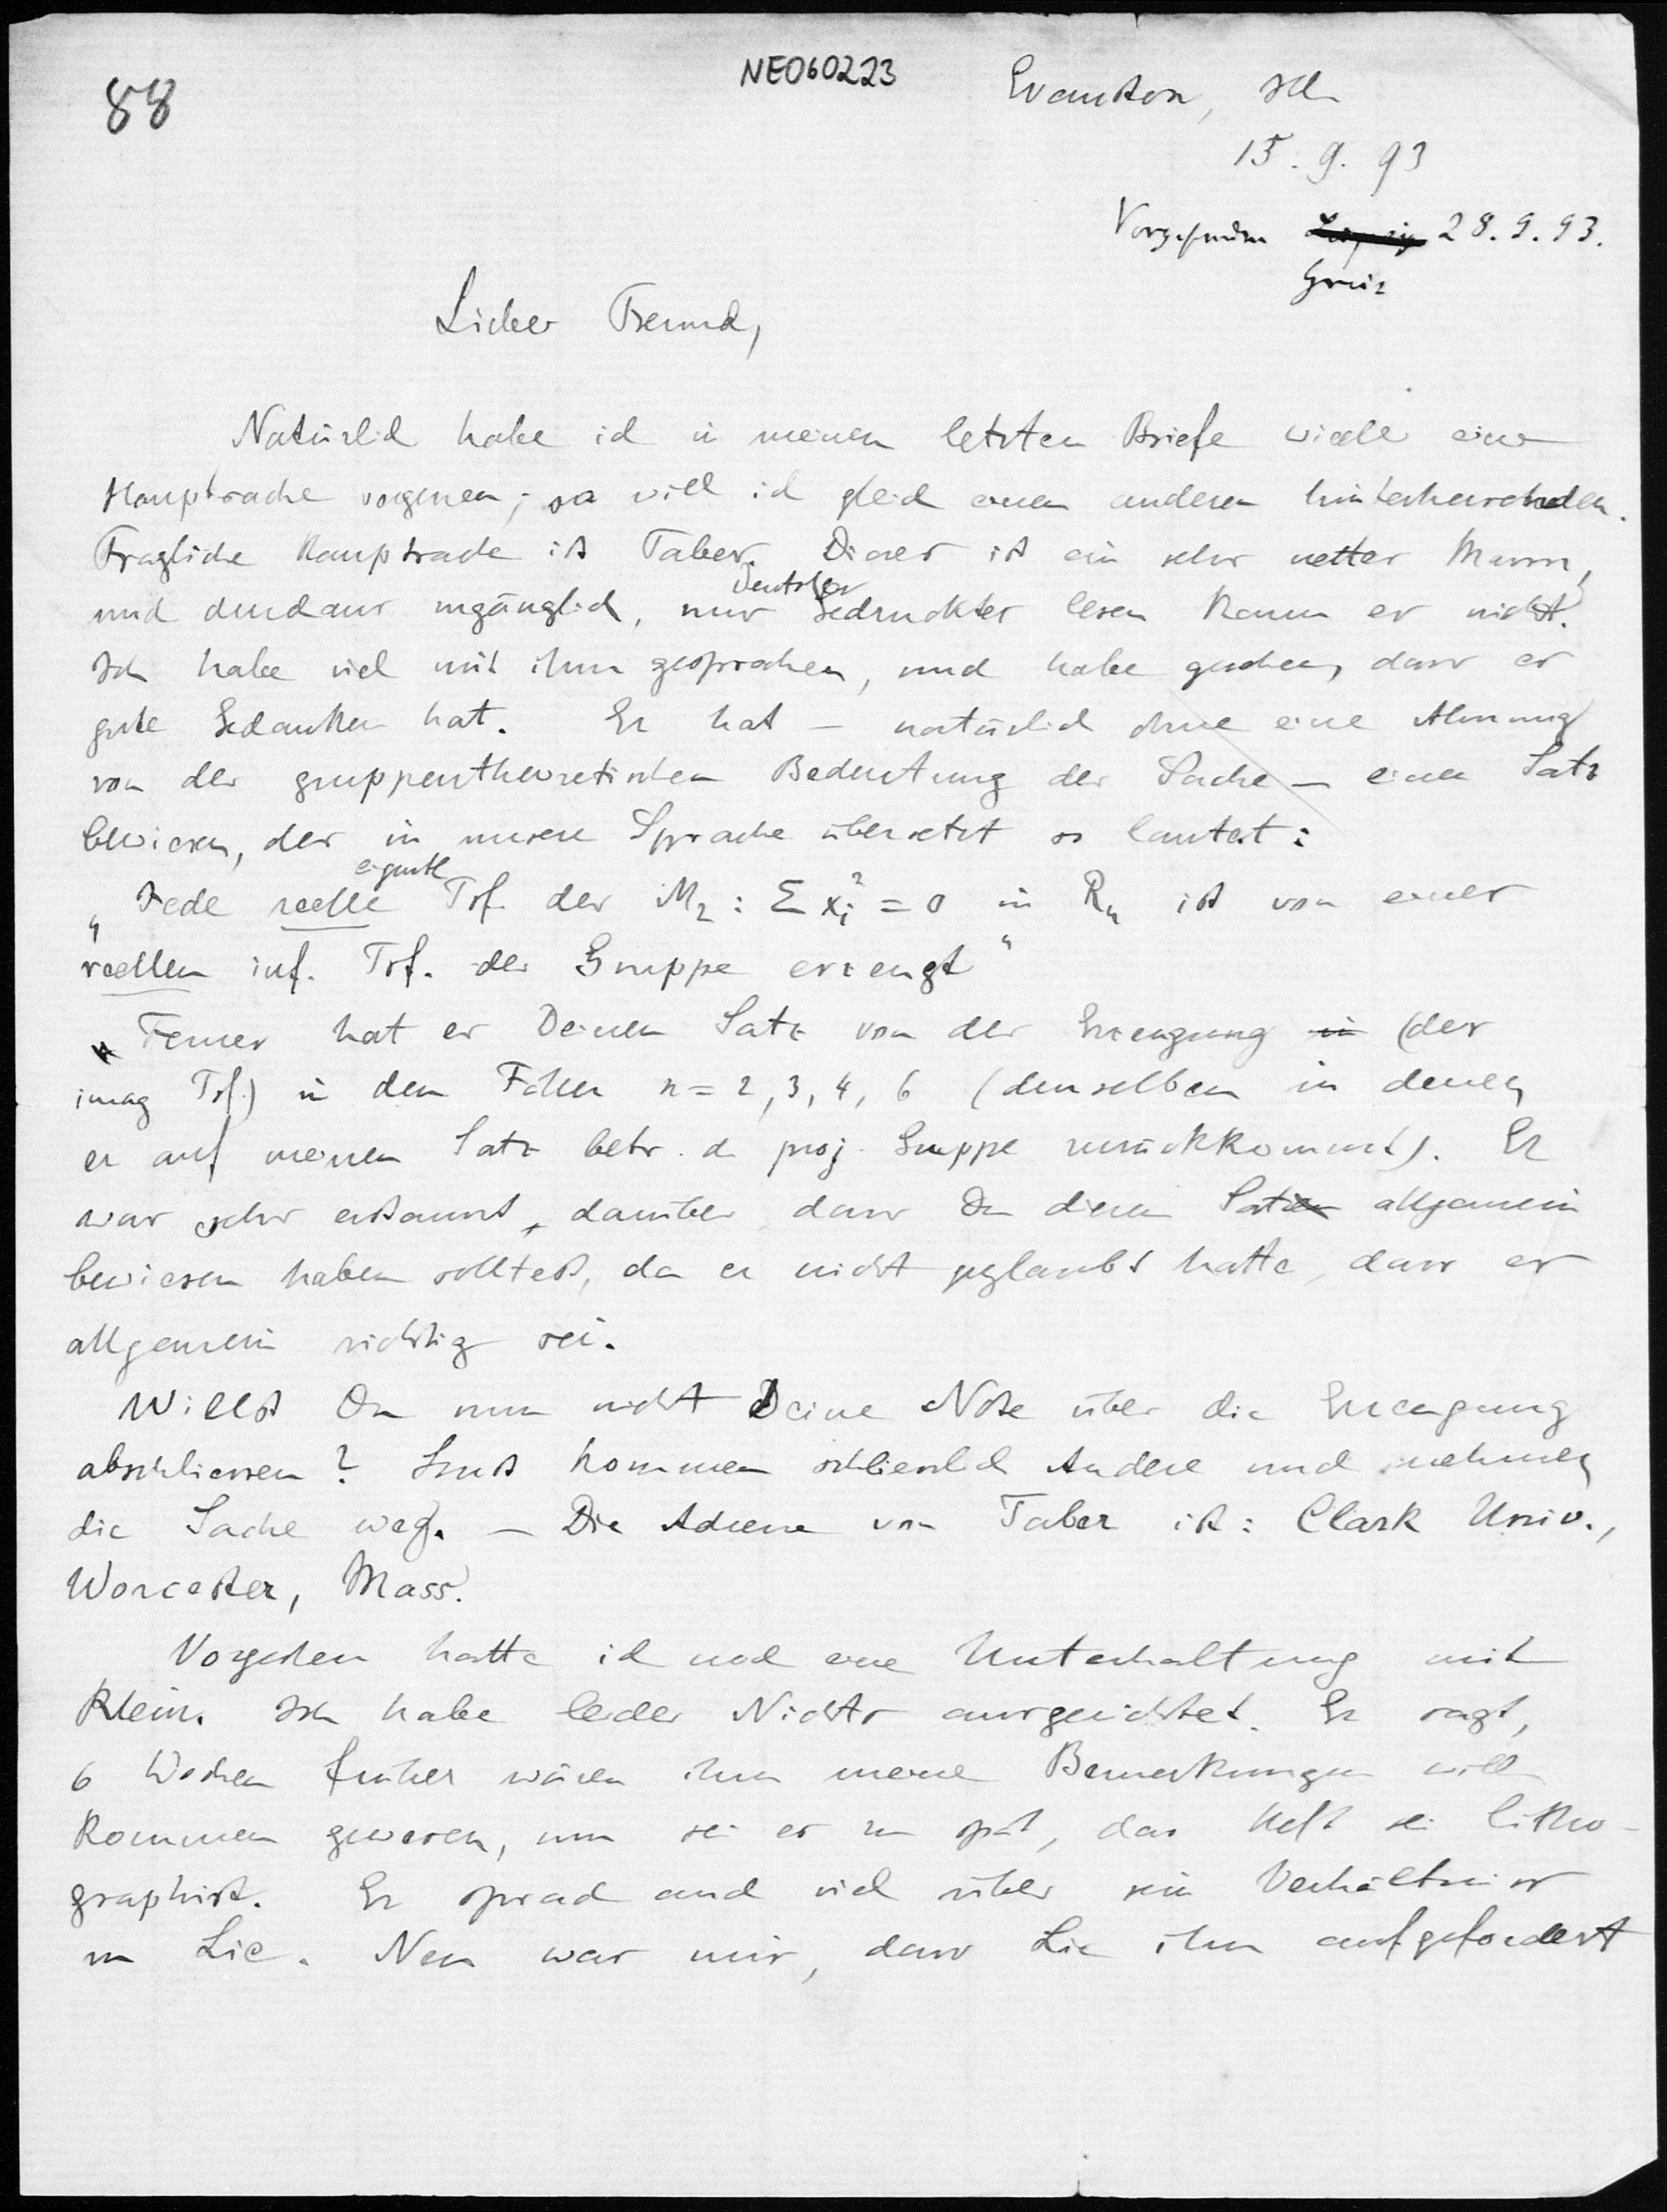 88
NE060223
Evanston, Ill
15. 9. 93
28. 9. 93.
Greiz
Lieber Freund,
Natürlich habe ich in meinem letzten Briefe wieder eine
Hauptsache vergessen; so will ich gleich einen anderen hinterhersenden.
Fragliche Hauptsache ist Taber. Dieser ist ein sehr netter Mann,
und durchaus zugänglich, nur Deutsches Gedrucktes lesen kann er nicht.
Ich habe viel mit ihm gesprochen, und habe gesehen, dass er
gute Gedanken hat. Er hat — natürlich ohne eine Ahnung
von der gruppentheoretischen Bedeutung der Sache — einen Satz
bewiesen, der in unsere Sprache übersetzt so lautet:
„Jede reelle eigentl Tsf. der M₂: Σ xᵢ² = 0 in Rₙ ist von einer
reellen inf. Tsf. der Gruppe erzeugt"
Ferner hat er Deinen Satz von der Erzeugung in (der
imag Tsf.) in den Fällen n = 2, 3, 4, 6 (denselben in denen
er auf meinen Satz betr. d proj. Gruppe zurückkommt). Er
war sehr erstaunt, darüber dass Du diesen Satz allgemein
bewiesen haben solltest, da er nicht geglaubt hatte, dass er
allgemein richtig sei.
Willst Du nun nicht Deine Note über die Erzeugung
abschliessen? Sonst kommen schliesslich Andere und nehmen
die Sache weg. — Die Adresse von Taber ist: Clark Univ.,
Worcester, Mass.
Vorgestern hatte ich noch eine Unterhaltung mit
Klein. Ich habe leider Nichts ausgerichtet. Er sagt,
6 Wochen früher wären ihm meine Bemerkungen will
kommen gewesen, nun sei es zu spät, das Heft sei litho-
graphirt. Er sprach auch viel über sein Verhältniss
zu Lie. Neu war mir, dass Lie ihn aufgefordert